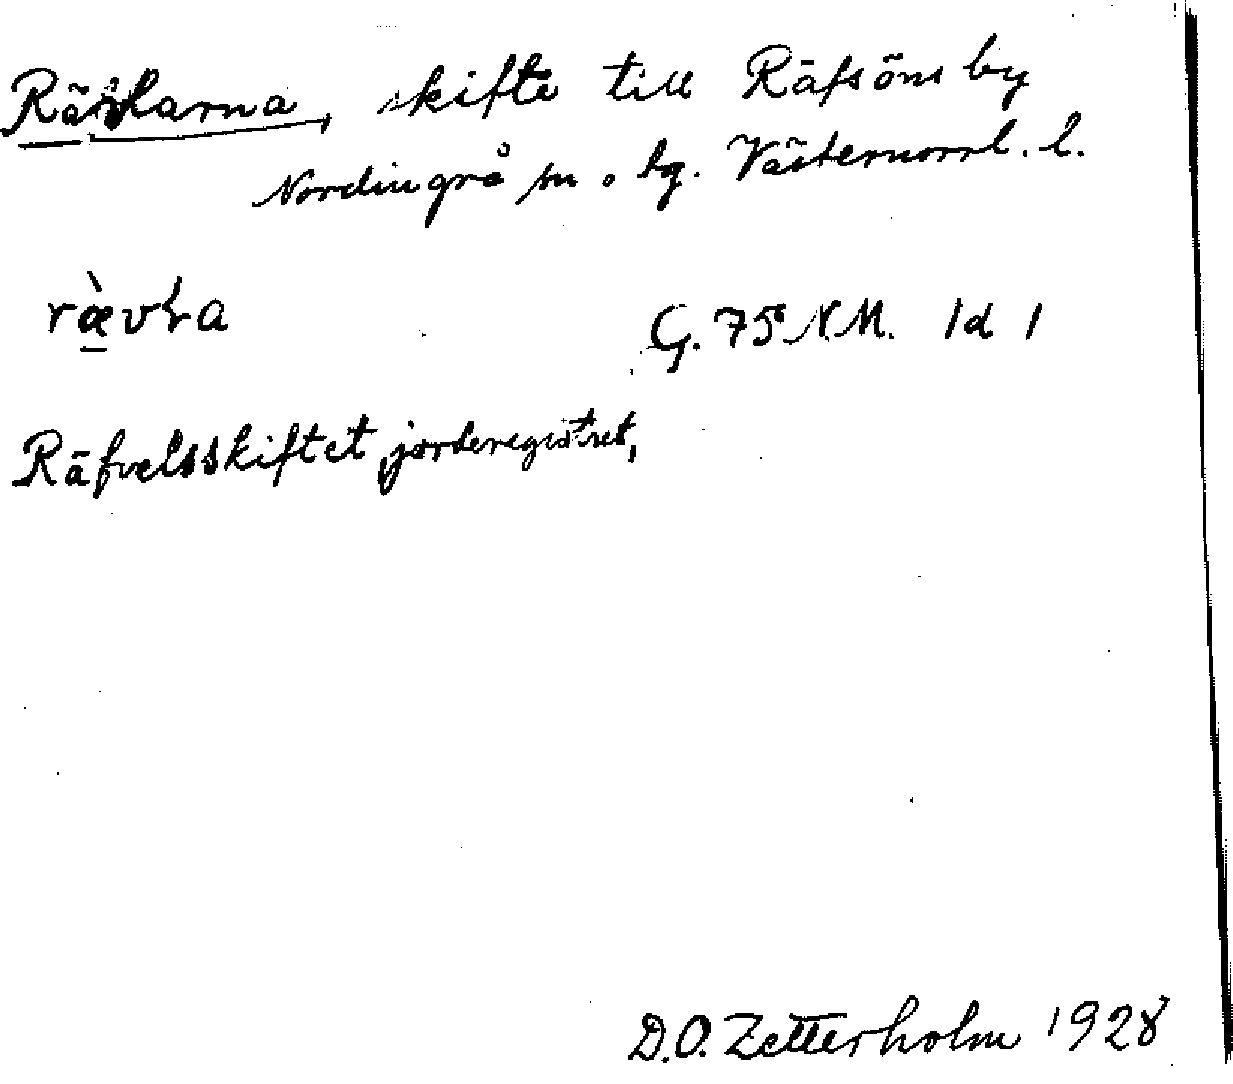 Rävlarna, skifte till Räfsöns by
Nordingrå sn o. hg. Västernorrl. l.
rævla G. 75 N.M. 1d 1
Räfvelsskiftet, jorderegistret,
D.O. Zetterholm 1928